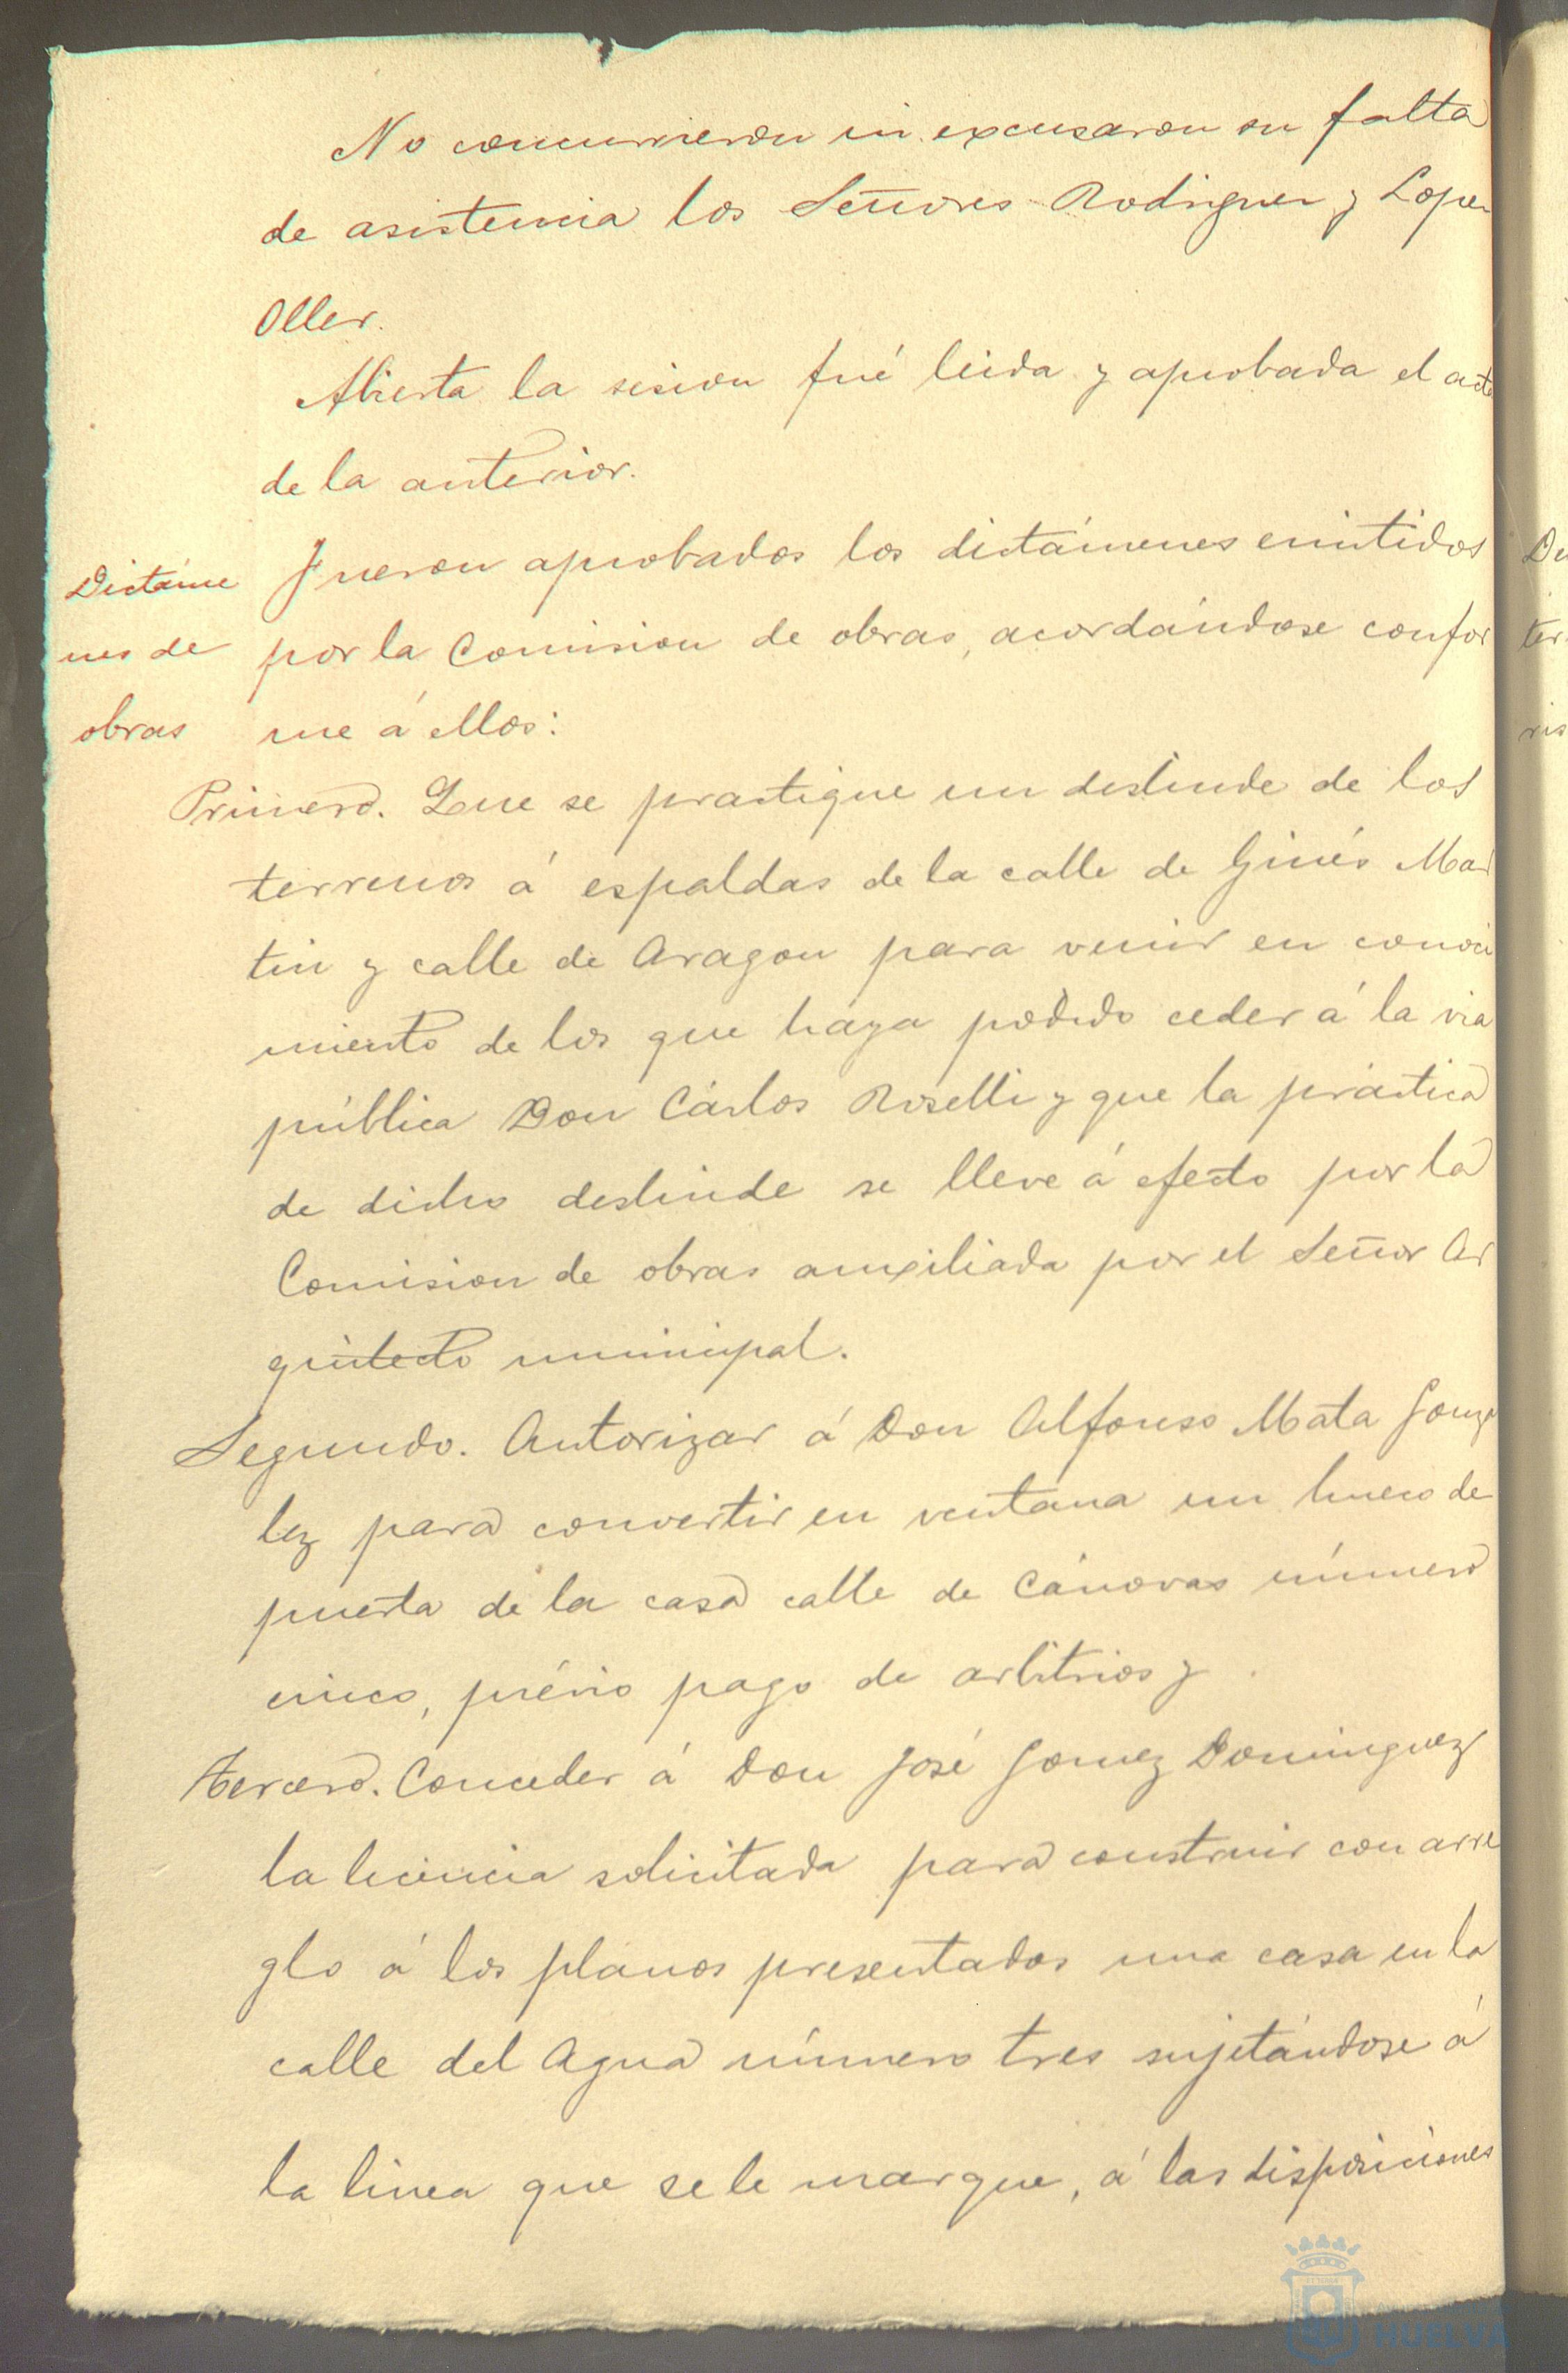 No concurrieron ni excusaron su falta
de asistencia los Señores Rodriguez y Lopez
Oller.
Abierta la sesion fué leida y aprobada el acta
de la anterior.
Dictáme
nes de
obras
Fueron aprobados los dictámenes emitidos
por la Comision de obras, acordándose confor
me á ellos:
Primero. Que se practique un deslinde de los
terrenos á espaldas de la calle de Ginés Mar
tin y calle de Aragon para venir en conoci
miento de los que haya podido ceder á la via
pública Don Cárlos Roselli y que la práctica
de dicho deslinde se lleve á efecto por la
Comision de obras auxiliada por el Señor Ar
quitecto municipal.
Segundo. Autorizar á Don Alfonso Mata Gonza
lez para convertir en ventana un hueco de
puerta de la casa calle de Cánovas número
cinco, prévio pago de arbitrios y
Tercero. Conceder á Don José Gomez Dominguez
la licencia solicitada para construir con arre
glo á los planos presentados una casa en la
calle del Agua número tres sujetándose á
la linea que se le marque, á las disposiciones
HUELVA